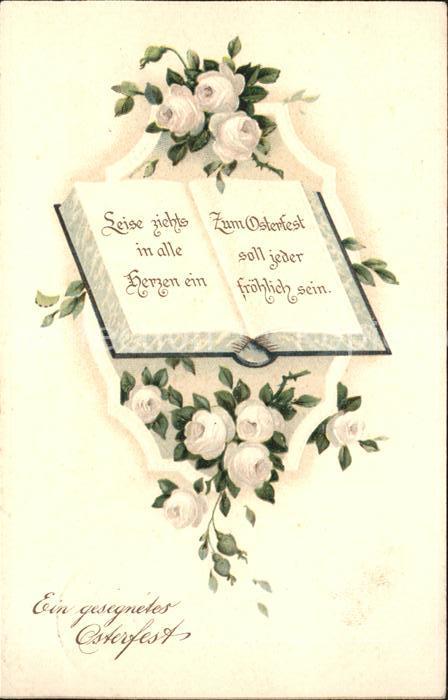 Leise ziehts
in alle
Herzen ein
Zum Osterfest
soll jeder
fröhlich sein.
Ein gesegnetes
Osterfest